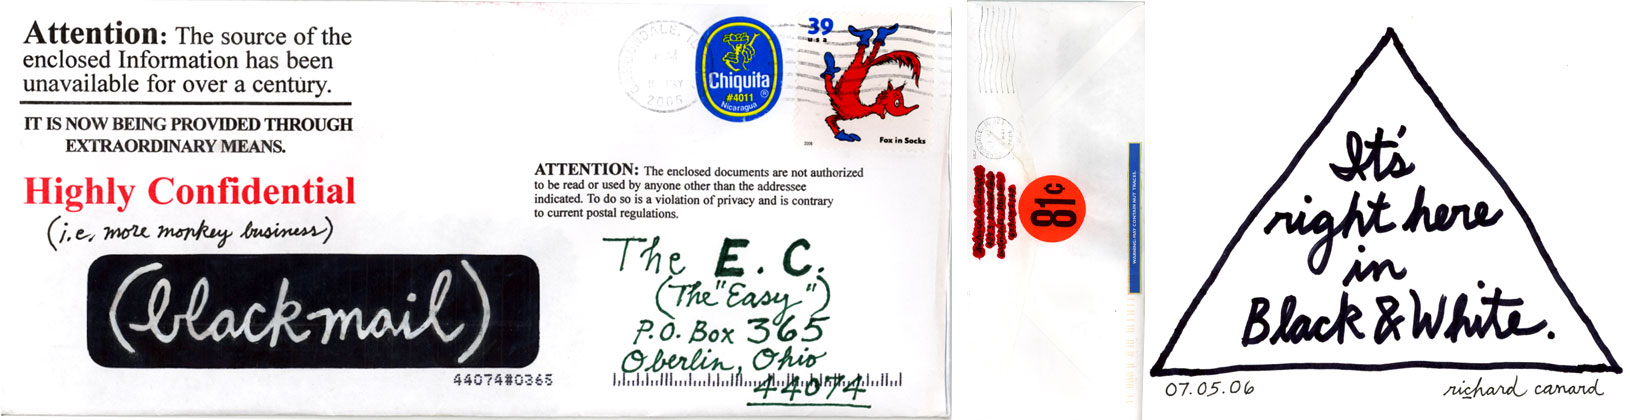 Attention: The source of the
enclosed Information has been
unavailable for over a century.
IT IS NOW BEING PROVIDED THROUGH
EXTRAORDINARY MEANS.
Highly Confidential
(i.e. more monkey business)
(blackmail)
44074#0365
2005
Chiquita
#4011
®
Nicaragua
39
USA
2006
Fox in Socks
ATTENTION: The enclosed documents are not authorized
to be read or used by anyone other than the addressee
indicated. To do so is a violation of privacy and is contrary
to current postal regulations.
The E. C.
(The "Easy")
P.O. Box 365
Oberlin, Ohio
44074
81¢
WARNING: MAY CONTAIN NUT TRACES.
It's
right here
in
Black & White.
07.05.06
richard canard